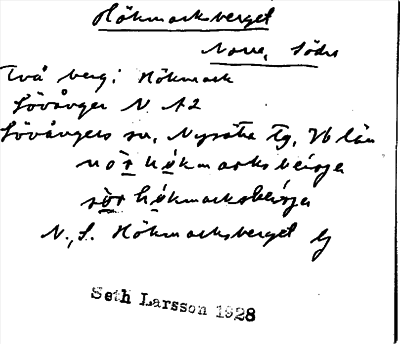 Hökmarksberget
Norra, Södra
Två berg i Hökmark
Lövånger N. A2
Lövångers sn, Nysätra tg, Vb län
nòr hökmarks beírga
sør hökmarksbeírga
N., S. Hökmarksberget Lj
Seth Larsson 1928